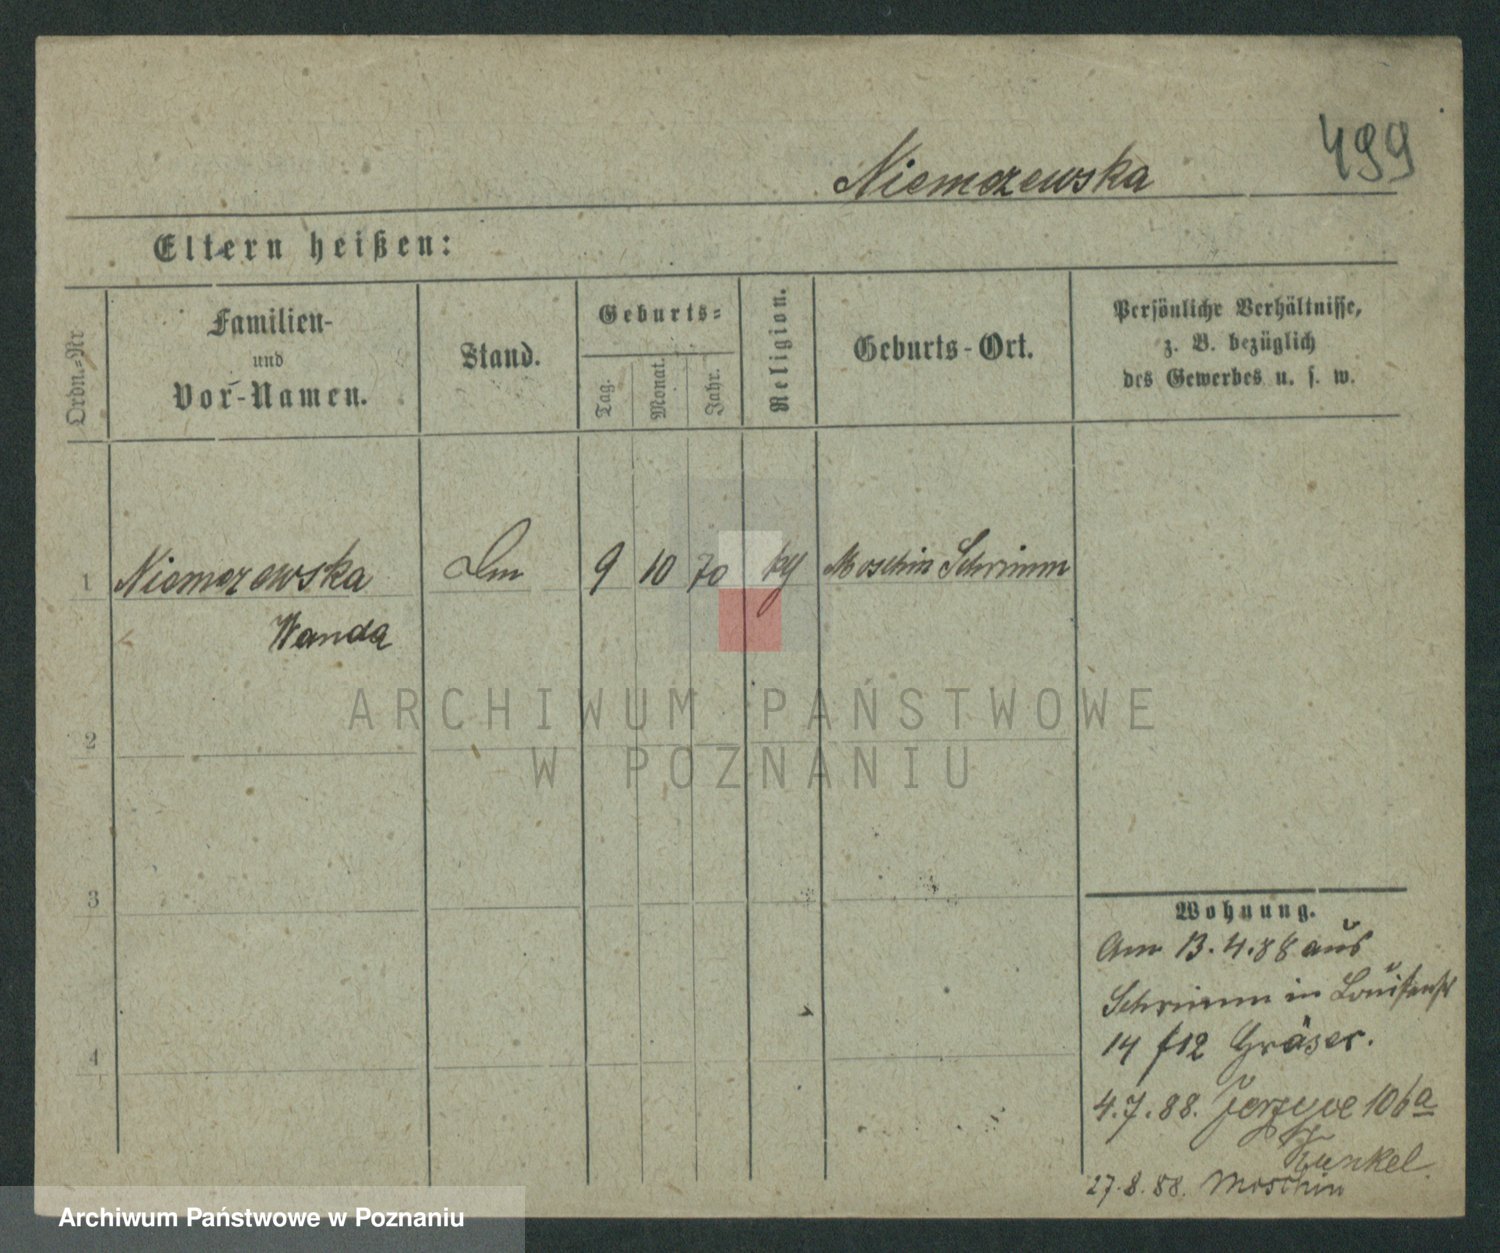 499
Niemczewska
Eltern heißen:
Ordn.-Nr
Familien-
und
Vor-Namen.
Stand.
Geburts-
Tag.
Monat.
Jahr.
Religion.
Geburts-Ort.
Persönliche Verhältnisse,
z. B. bezüglich
des Gewerbes u. s. w.
1 Niemczewska 9 10 70 kg Moschin Schrimm
Wanda
2
3
4
Wohnung.
Am 13.4.88 aus
Schrimm in Louisenst
14 f12 Gräser.
4.7.88. Jerzyce 106a
Kunkel
27.8.88. Moschin
ARCHIWUM PAŃSTWOWE
W POZNANIU
Archiwum Państwowe w Poznaniu